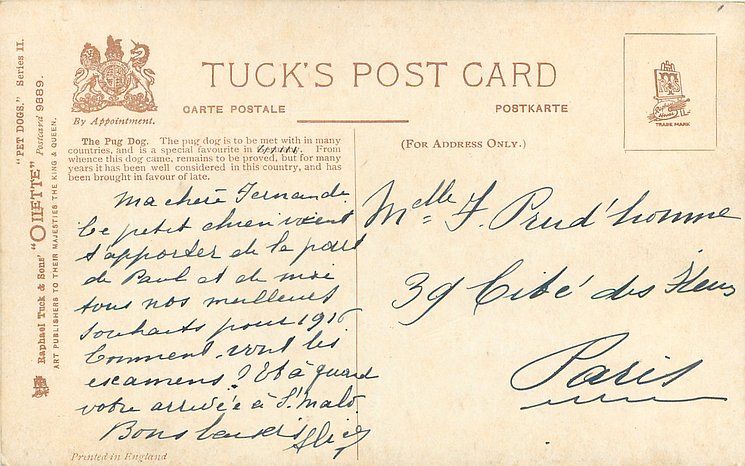 "PET DOGS." Series II.
Raphael Tuck & Sons' "OILETTE" Postcard 9889.
ART PUBLISHERS TO THEIR MAJESTIES THE KING & QUEEN.
By Appointment.
TUCK'S POST CARD
CARTE POSTALE
POSTKARTE
TRADE MARK
The Pug Dog. The pug dog is to be met with in many
countries, and is a special favourite in From
whence this dog came, remains to be proved, but for many
years it has been well considered in this country, and has
been brought in favour of late.
(FOR ADDRESS ONLY.)
Ma chère Fernande
Ce petit chien vient
t'apporter de la part
de Paul et de moi
tous nos meilleurs
souhaits pour 1916
Comment vont les
escamens? Et à quand
votre arrivée à St Malo.
Bons baisers Alice
Melle F. Prud'homme
39 Cité des Fleurs
Paris
Printed in England